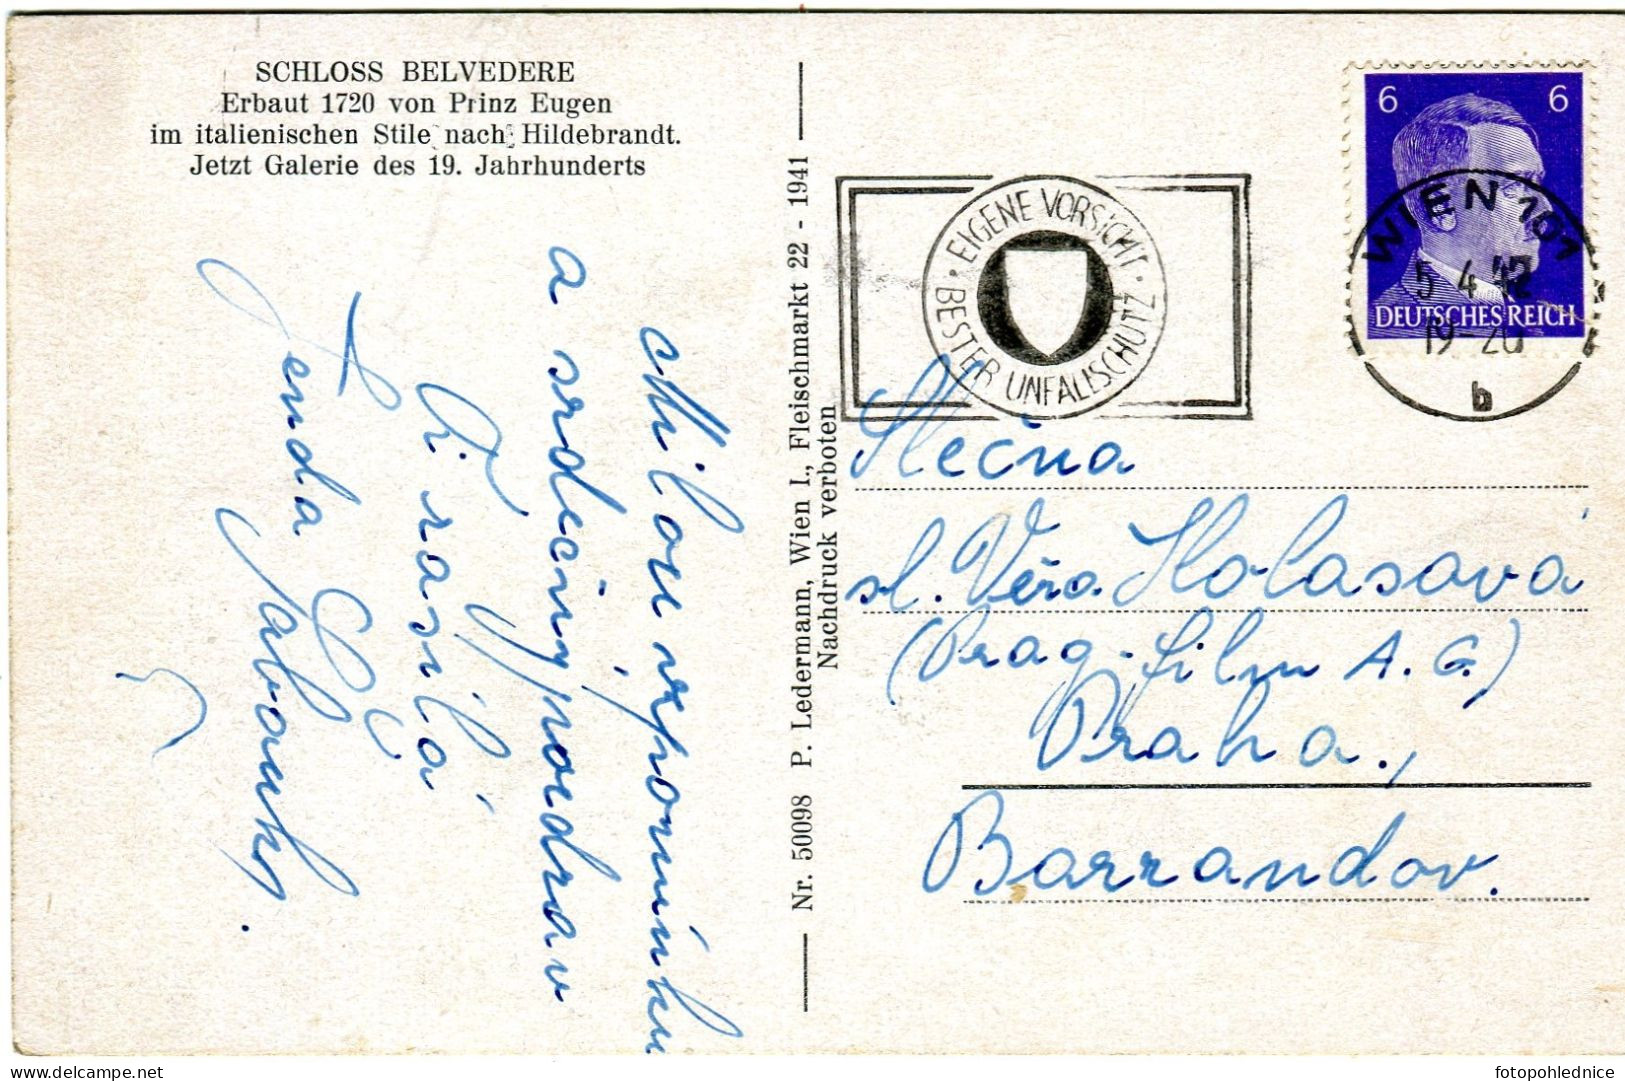 SCHLOSS BELVEDERE
Erbaut 1720 von Prinz Eugen
im italienischen Stile nach Hildebrandt.
Jetzt Galerie des 19. Jahrhunderts
Milou vzpomínku
a srdečný pozdrav
Ti zasílá
Jenda
Nr. 50098 P. Ledermann, Wien I., Fleischmarkt 22 - 1941
Nachdruck verboten
EIGENE VORSICHT · BESTER UNFALLSCHUTZ ·
6 6
DEUTSCHES REICH
WIEN 101
5 4 42
19-20
b
Slečna
sl. Věra Holasová
(Prag-film A. G.)
Praha.,
Barrandov.
fotopohlednice